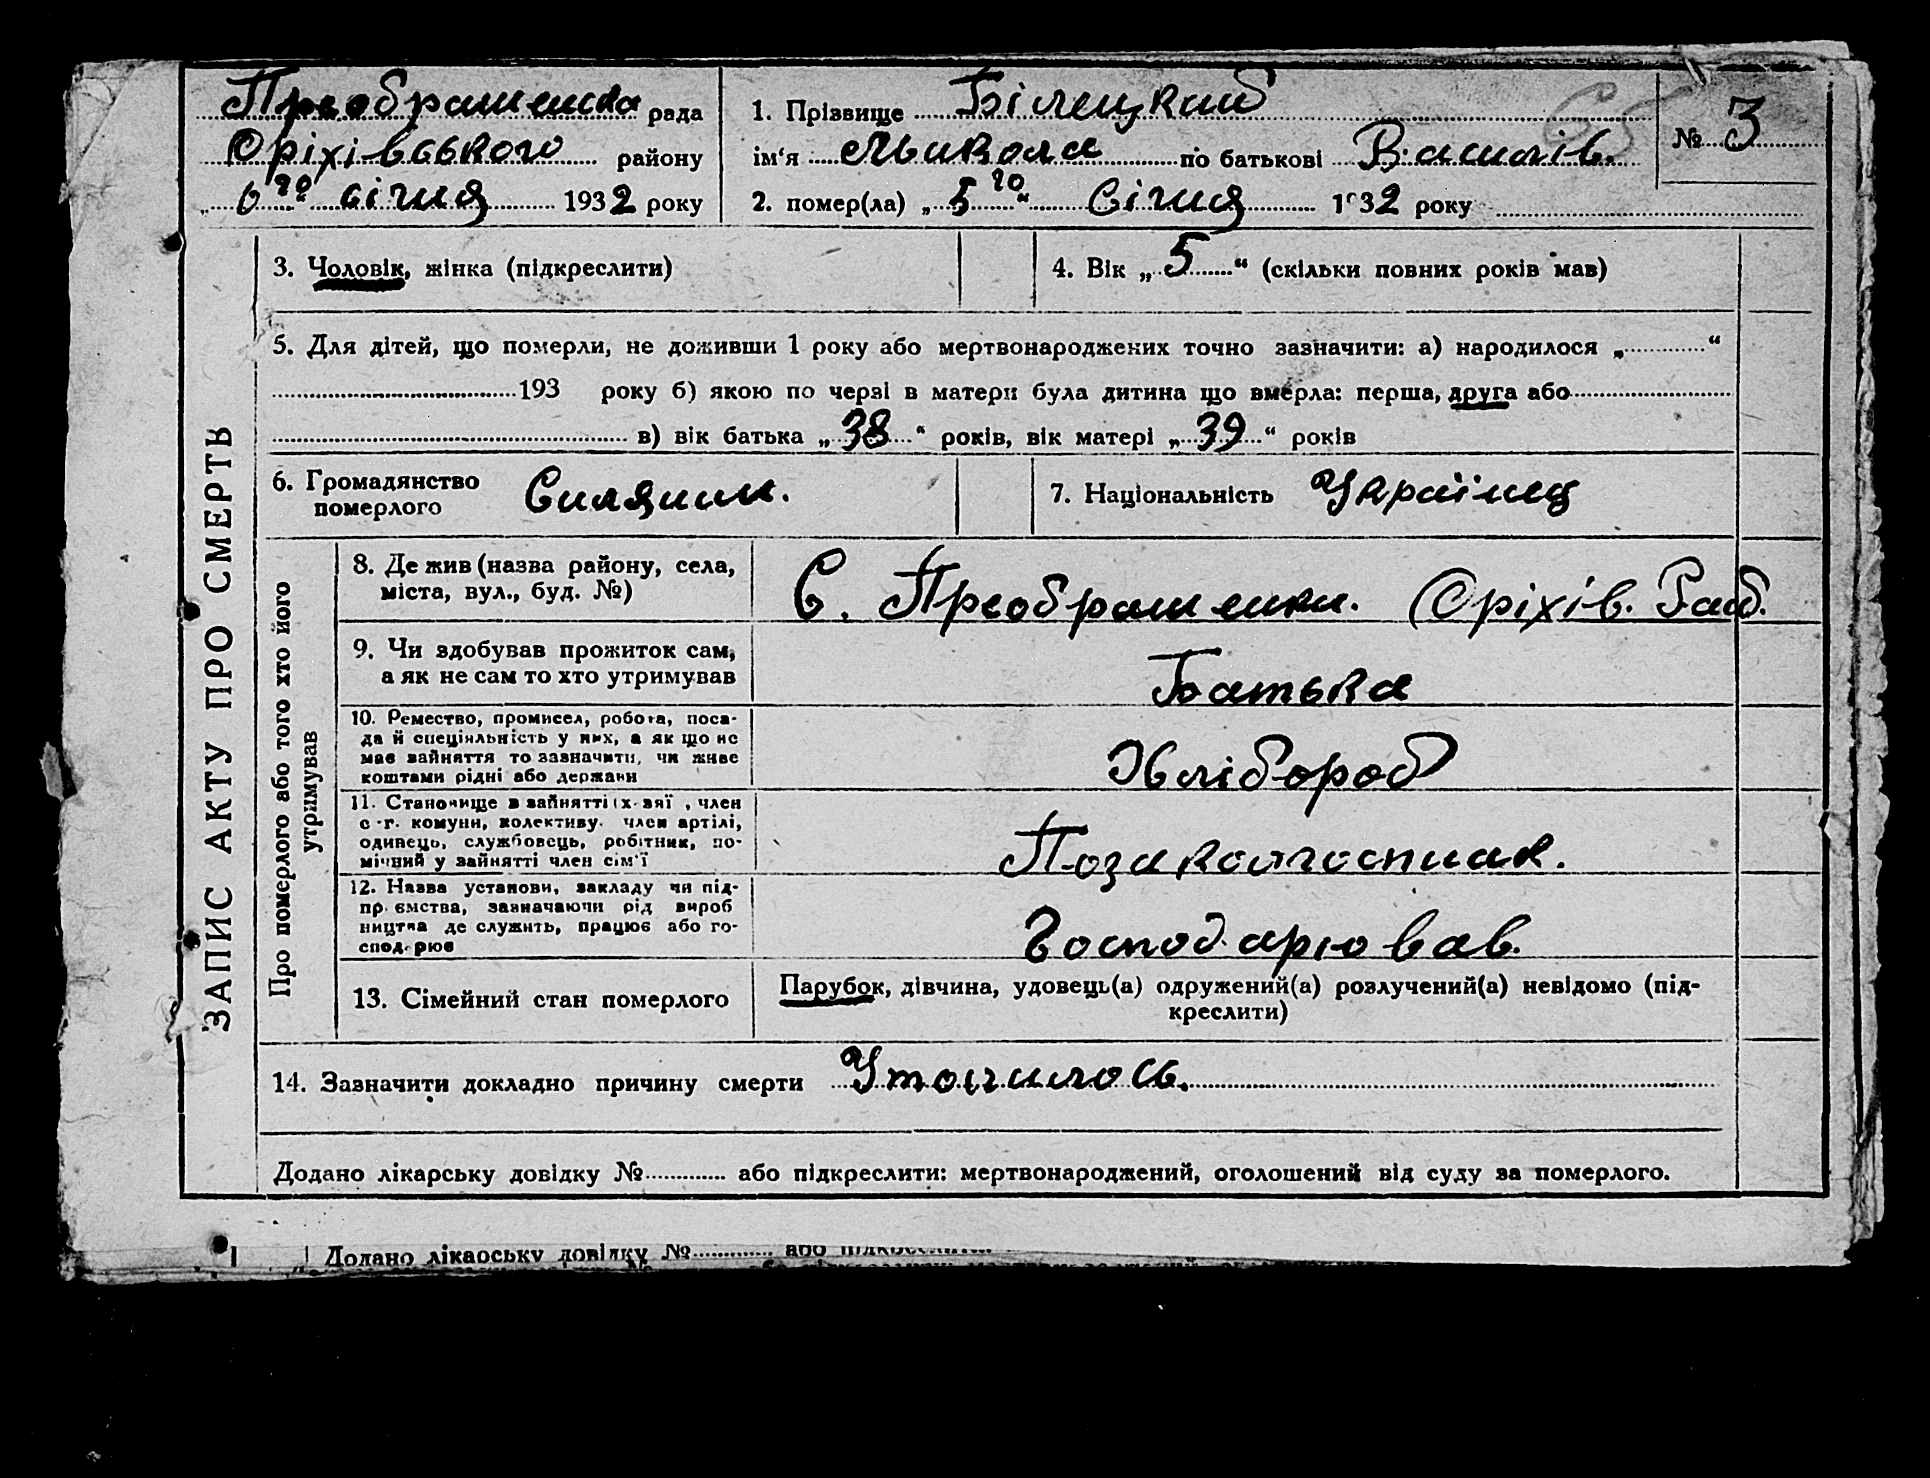 Преображенска рада
Оріхівського району
„ 6го “ січня 1932 року
1. Прізвище Білецкий
ім‘я Микола по батькові Василів.
2. помер(ла) „ 5го “ Січня 1932 року
№ 3
3. Чоловік, жінка (підкреслити)
4. Вік „ 5 “ (скільки повних років мав)
5. Для дітей, що померли, не доживши 1 року або мертвонароджених точно зазначити: а) народилося „ “
193 року б) якою по черзі в матери була дитина що вмерла: перша, друга або
в) вік батька „ 38 “ років, вік матері „ 39 “ років
6. Громадянство
померлого
Силянин.
7. Національність Українец
ЗАПИС АКТУ ПРО СМЕРТЬ
Про померлого або того хто його
утримував
8. Де жив (назва району, села,
міста, вул., буд. №)
С. Преображенки. Оріхів. Рай.
9. Чи здобував прожиток сам,
а як не сам то хто утримував
Батька
10. Ремество, промисел, робота, поса-
да й спеціяльність у них, а як що не
має зайняття то зазначити, чи живе
коштами рідні або держави
Хлібороб
11. Становище в зайнятті , член
с.-г. комуни, колективу. член артілі,
одинець, службовець, робітник, по-
мічний у зайнятті член сім‘ї
Позаколгоспник.
12. Назва установи, закладу чи під-
пр. ємства, зазначаючи рід вироб
ництва де служить, працює або го-
сподарює
Господарював.
13. Сімейний стан померлого
Парубок, дівчина, удовець(а) одружений(а) розлучений(а) невідомо (під-
креслити)
14. Зазначити докладно причину смерти Утопилось.
Додано лікарську довідку № або підкреслити: мертвонароджений, оголошений від суду за померлого.
Додано лікарську довідку № або